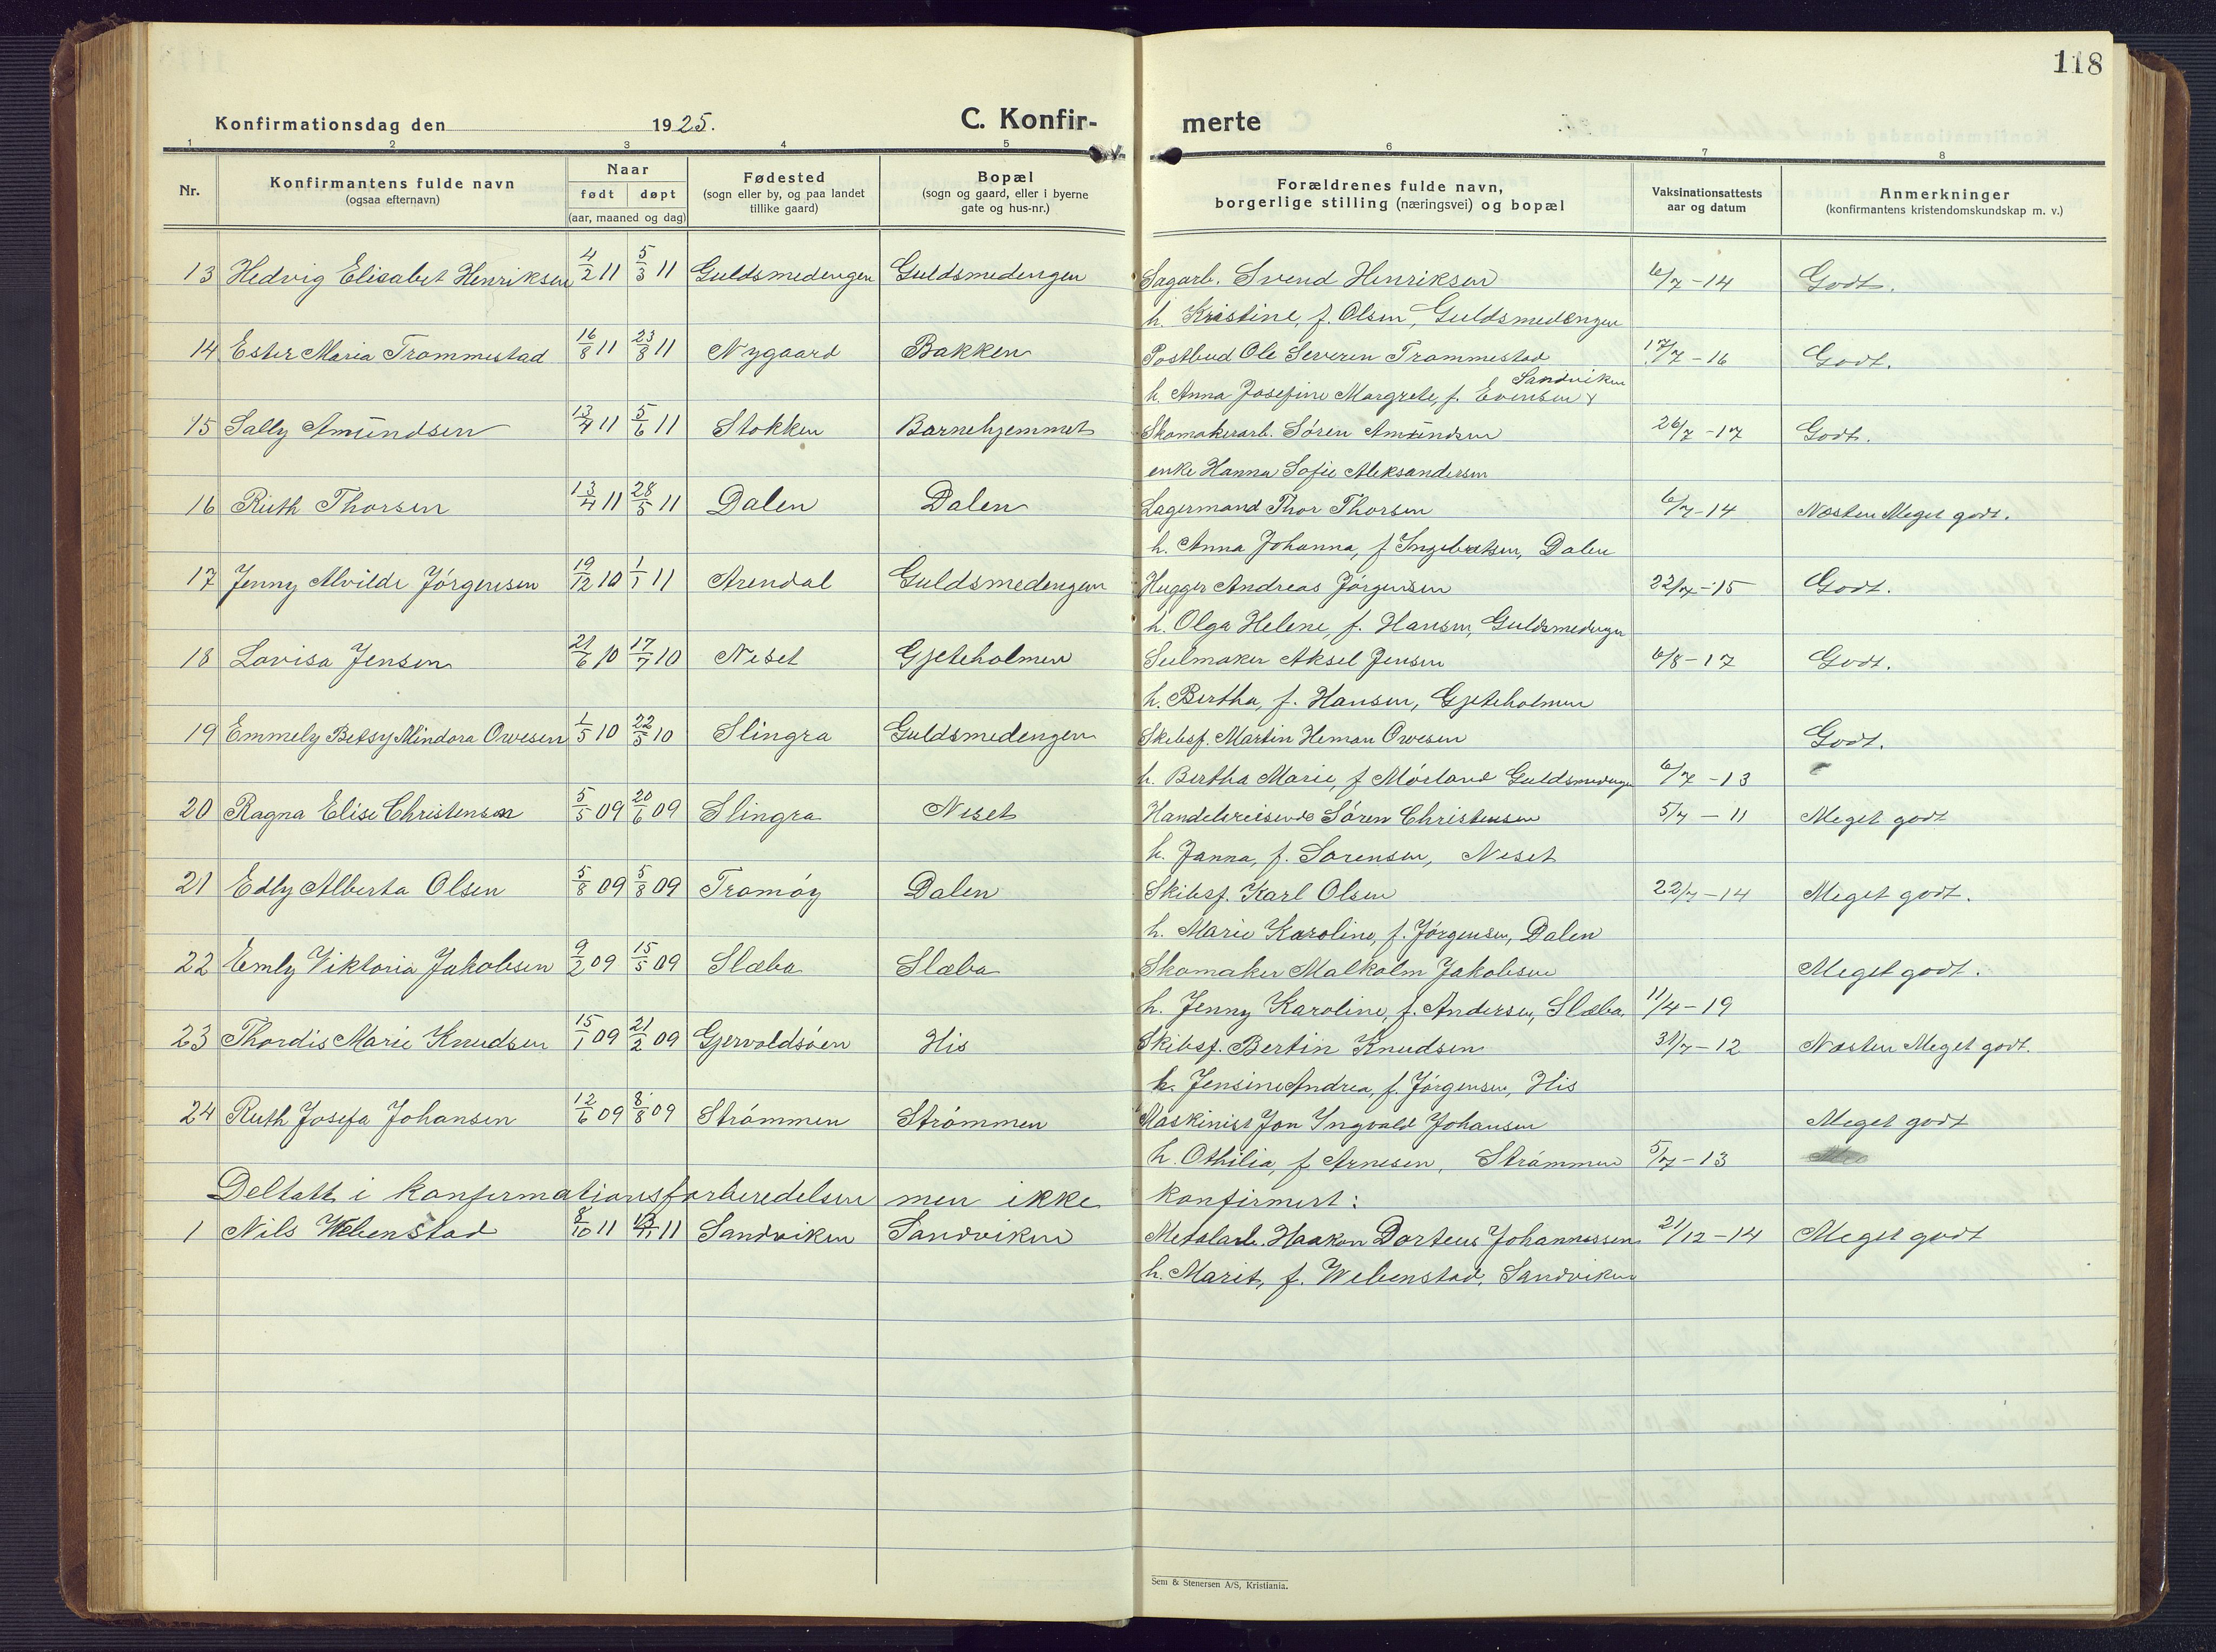 118
Konfirmationsdag den 1925. C. Konfir- merte
1 2 3 4 5 6 7 8
Nr. Konfirmantens fulde navn (ogsaa efternavn) Naar født døpt (aar, maaned og dag) Fødested (sogn eller by, og paa landet tillike gaard) Bopæl (sogn og gaard, eller i byerne gate og hus-nr.) Forældrenes fulde navn, borgerlige stilling (næringsvei) og bopæl Vaksinationsattests aar og datum Anmerkninger (konfirmantens kristendomskundskap m. v.)
13 Hedvig Elisabet Henriksen 4/2 11 5/3 11 Guldsmedengen Guldsmedengen Sagarb. Svend Henriksen 6/7-14 Godt.
h. Kristine, f. Olsen, Guldsmedengen
14 Ester Maria Trommestad 16/8 11 23/8 11 Nygaard Bakken Postbud Ole Severin Trommestad 17/7-16 Godt.
Sandviken
h. Anna Josefine Margrete, f. Evensen
15 Sally Amundsen 13/4 11 5/6 11 Stokken Barnehjemmet Skomakerarb. Søren Amundsen 26/7-17 Godt.
enke Hanna Sofie Aleksandersen
16 Ruth Thorsen 13/4 11 28/5 11 Dalen Dalen Lagermand Thor Thorsen 6/7-14 Næsten Meget godt.
h. Anna Johanna, f. Ingebretsen, Dalen
17 Jenny Alvilde Jørgensen 19/12 10 1/1 11 Arendal Guldsmedengen Hugger Andreas Jørgensen 22/7-15 Godt.
h. Olga Helene, f. Hansen, Guldsmedengen
18 Lovisa Jensen 21/6 10 17/7 10 Neset Gjeteholmen Seilmaker Aksel Jensen 6/8-17 Godt.
h. Bertha, f. Hansen, Gjeteholmen
19 Emmely Betsy Mindora Owesen 1/5 10 22/5 10 Slingra Guldsmedengen Skibsf. Martin Heman Owesen Godt.
h. Bertha Marie, f. Mørland Guldsmedengen 6/7-13
20 Ragna Elise Christensen 5/5 09 20/6 09 Slingra Neset Handelsreisende Søren Christensen 5/7-11 Meget godt
h. Janna, f. Sørensen, Neset
21 Edly Alberta Olsen 5/8 09 5/8 09 Tromøy Dalen Skibsf. Karl Olsen 22/7-14 Meget godt.
h. Marie Karoline, f. Jørgensen, Dalen
22 Emly Viktoria Jakobsen 9/2 09 15/5 09 Slæba Slæba Skomaker Malkolm Jakobsen Meget godt.
h. Jenny Karoline, f. Andersen, Slæba. 11/4-19
23 Thordis Marie Knudsen 15/1 09 21/2 09 Gjervoldsøen His Skibsf. Bertin Knudsen 31/7-12 Næsten Meget godt.
h. Jensine Andrea, f. Jørgensen, His
24 Ruth Josefa Johansen 12/6 09 8/8 09 Strømmen Strømmen Maskinist Jon Yngvald Johansen Meget godt
h. Othilia, f. Arnesen, Strømmen 5/7-13
Deltatt i konfirmationsforberedelsen men ikke konfirmert:
1 Nils Webenstad 8/10 11 11 Sandviken Sandviken Metalarb. Haakon Dorteus Johannessen 21/12-14 Meget godt
h. Marit, f. Webenstad, Sandviken
Sem & Stenersen A/S, Kristiania.